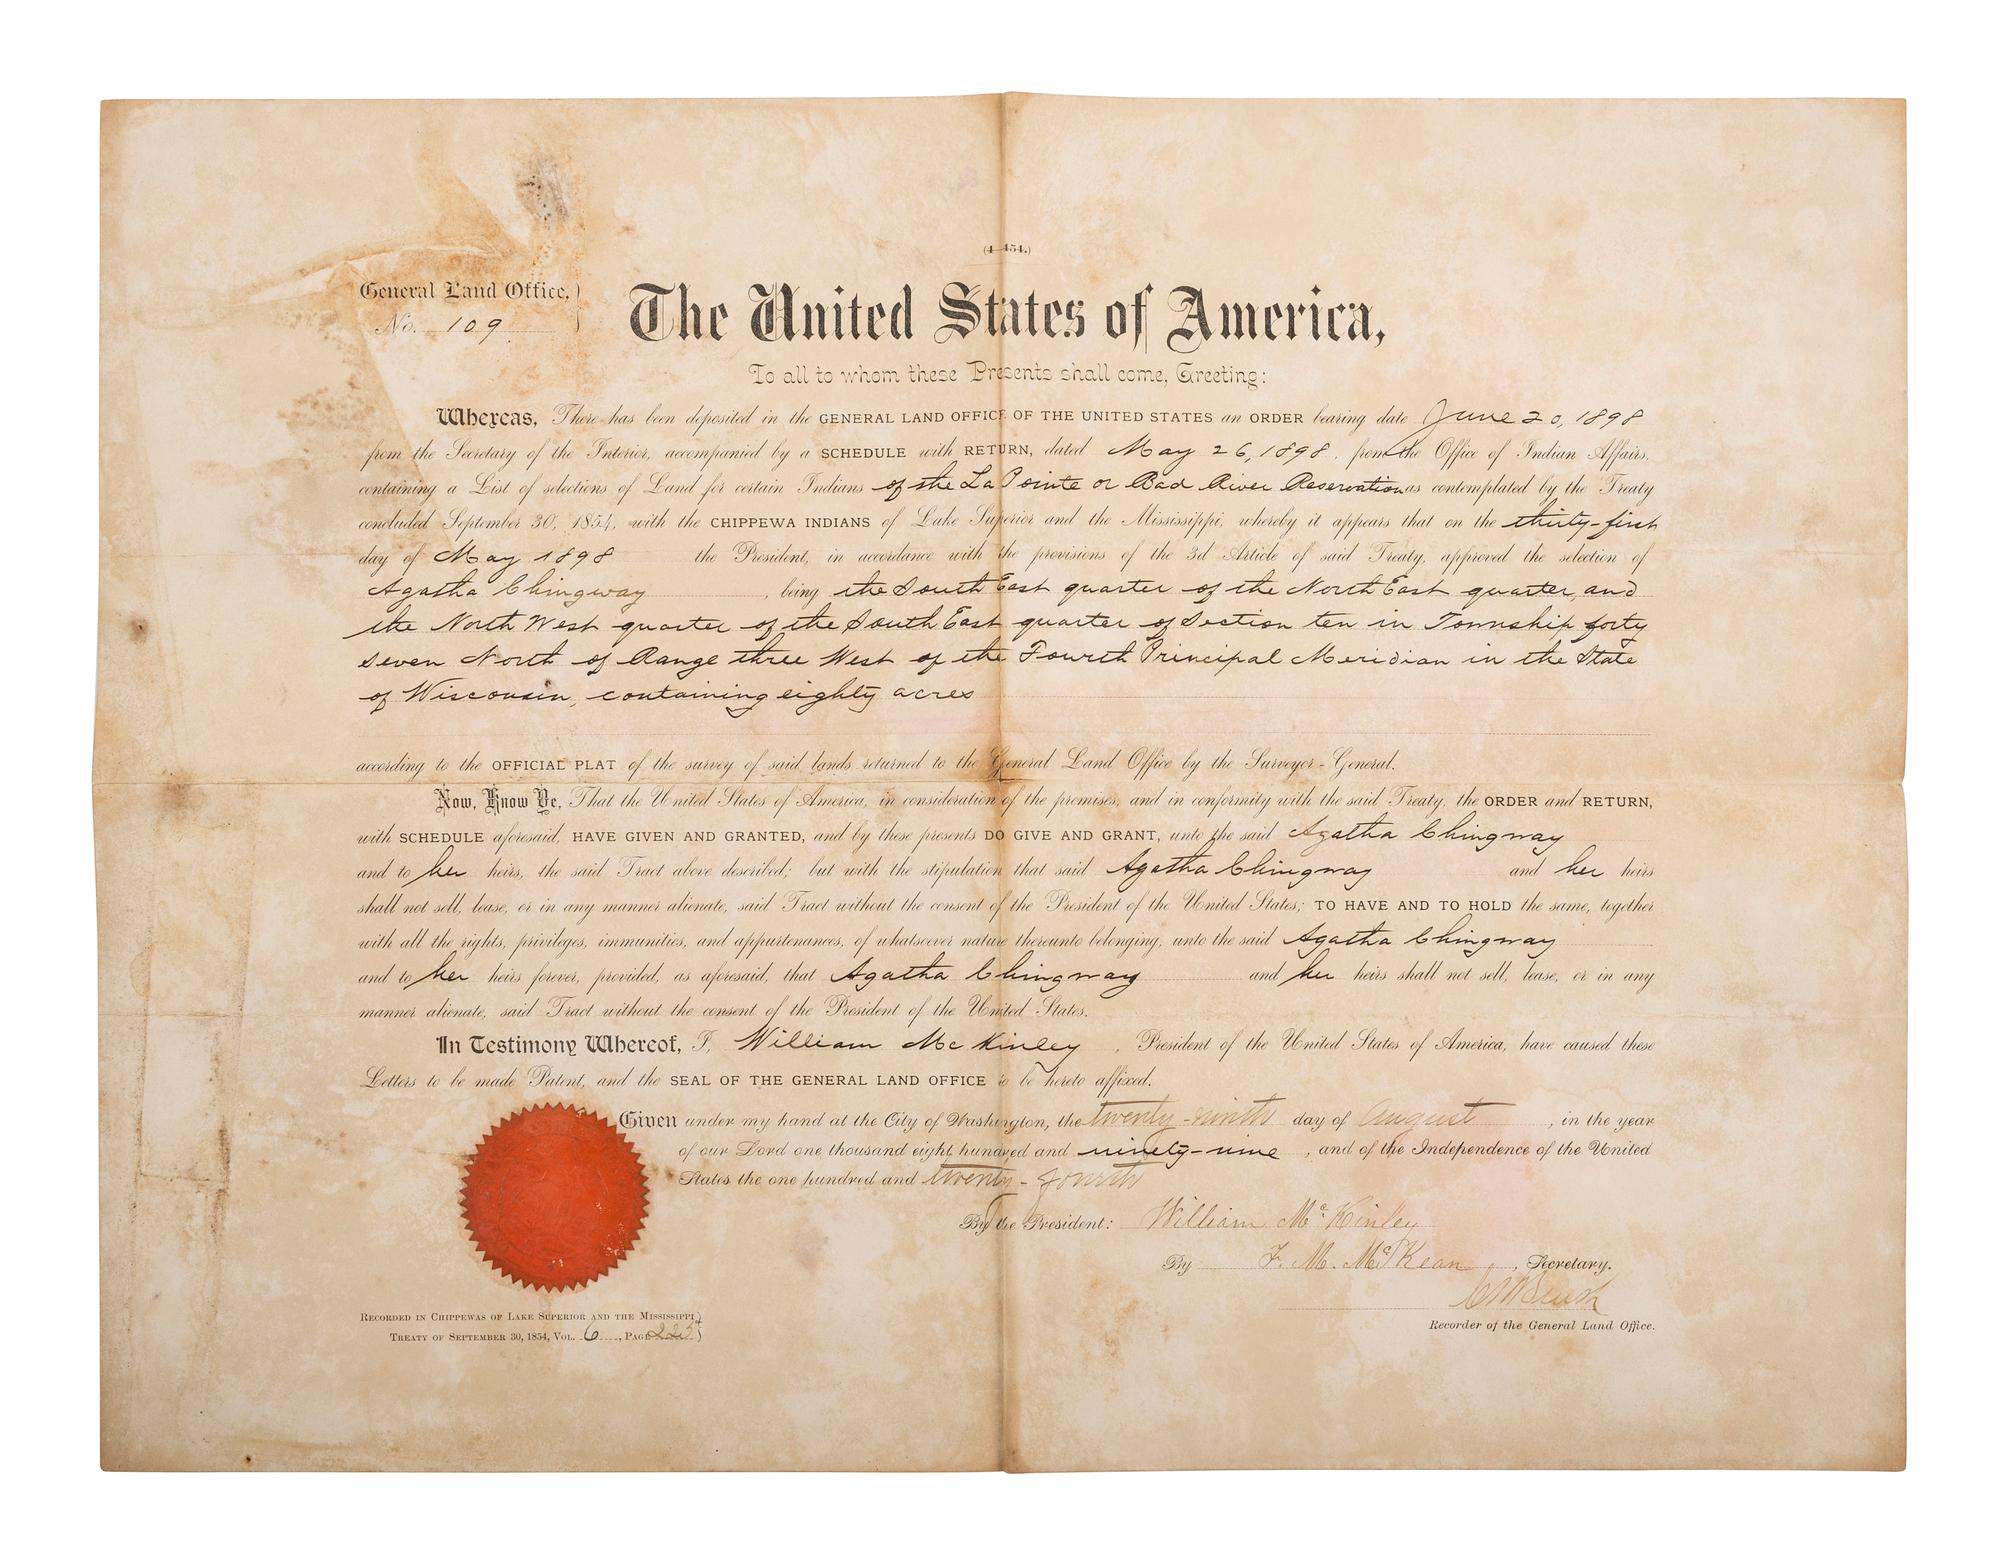 (4—454.)
General Land Office,
No. 109
The United States of America,
To all to whom these Presents shall come, Greeting:
Whereas, There has been deposited in the GENERAL LAND OFFICE OF THE UNITED STATES an ORDER bearing date June 20, 1898
from the Secretary of the Interior, accompanied by a SCHEDULE with RETURN, dated May 26, 1898, from the Office of Indian Affairs,
containing a List of selections of Land for certain Indians of the La Pointe or Bad River Reservation as contemplated by the Treaty
concluded September 30, 1854, with the CHIPPEWA INDIANS of Lake Superior and the Mississippi, whereby it appears that on the thirty-first
day of May 1898 the President, in accordance with the provisions of the 3d Article of said Treaty, approved the selection of
Agatha Chingway, being the South East quarter of the North East quarter, and
the North West quarter of the South East quarter of Section ten in Township forty
seven North of Range three West of the Fourth Principal Meridian in the State
of Wisconsin, containing eighty acres
according to the OFFICIAL PLAT of the survey of said lands returned to the General Land Office by the Surveyor-General.
Now, Know Ye, That the United States of America, in consideration of the premises, and in conformity with the said Treaty, the ORDER and RETURN,
with SCHEDULE aforesaid, HAVE GIVEN AND GRANTED, and by these presents DO GIVE AND GRANT, unto the said Agatha Chingway
and to her heirs, the said Tract above described; but with the stipulation that said Agatha Chingway and her heirs
shall not sell, lease, or in any manner alienate, said Tract without the consent of the President of the United States; TO HAVE AND TO HOLD the same, together
with all the rights, privileges, immunities, and appurtenances, of whatsoever nature thereunto belonging, unto the said Agatha Chingway
and to her heirs forever, provided, as aforesaid, that Agatha Chingway and her heirs shall not sell, lease, or in any
manner alienate, said Tract without the consent of the President of the United States.
In Testimony Whereof, I, William McKinley, President of the United States of America, have caused these
Letters to be made Patent, and the SEAL OF THE GENERAL LAND OFFICE to be hereto affixed.
Given under my hand at the City of Washington, the twenty-ninth day of August, in the year
of our Lord one thousand eight hundred and ninety-nine, and of the Independence of the United
States the one hundred and twenty-fourth
By the President: William McKinley
By F. M. McKean, Secretary.
C H Brush
Recorder of the General Land Office.
RECORDED IN CHIPPEWAS OF LAKE SUPERIOR AND THE MISSISSIPPI,
TREATY OF SEPTEMBER 30, 1854, VOL. 6, PAGE 225